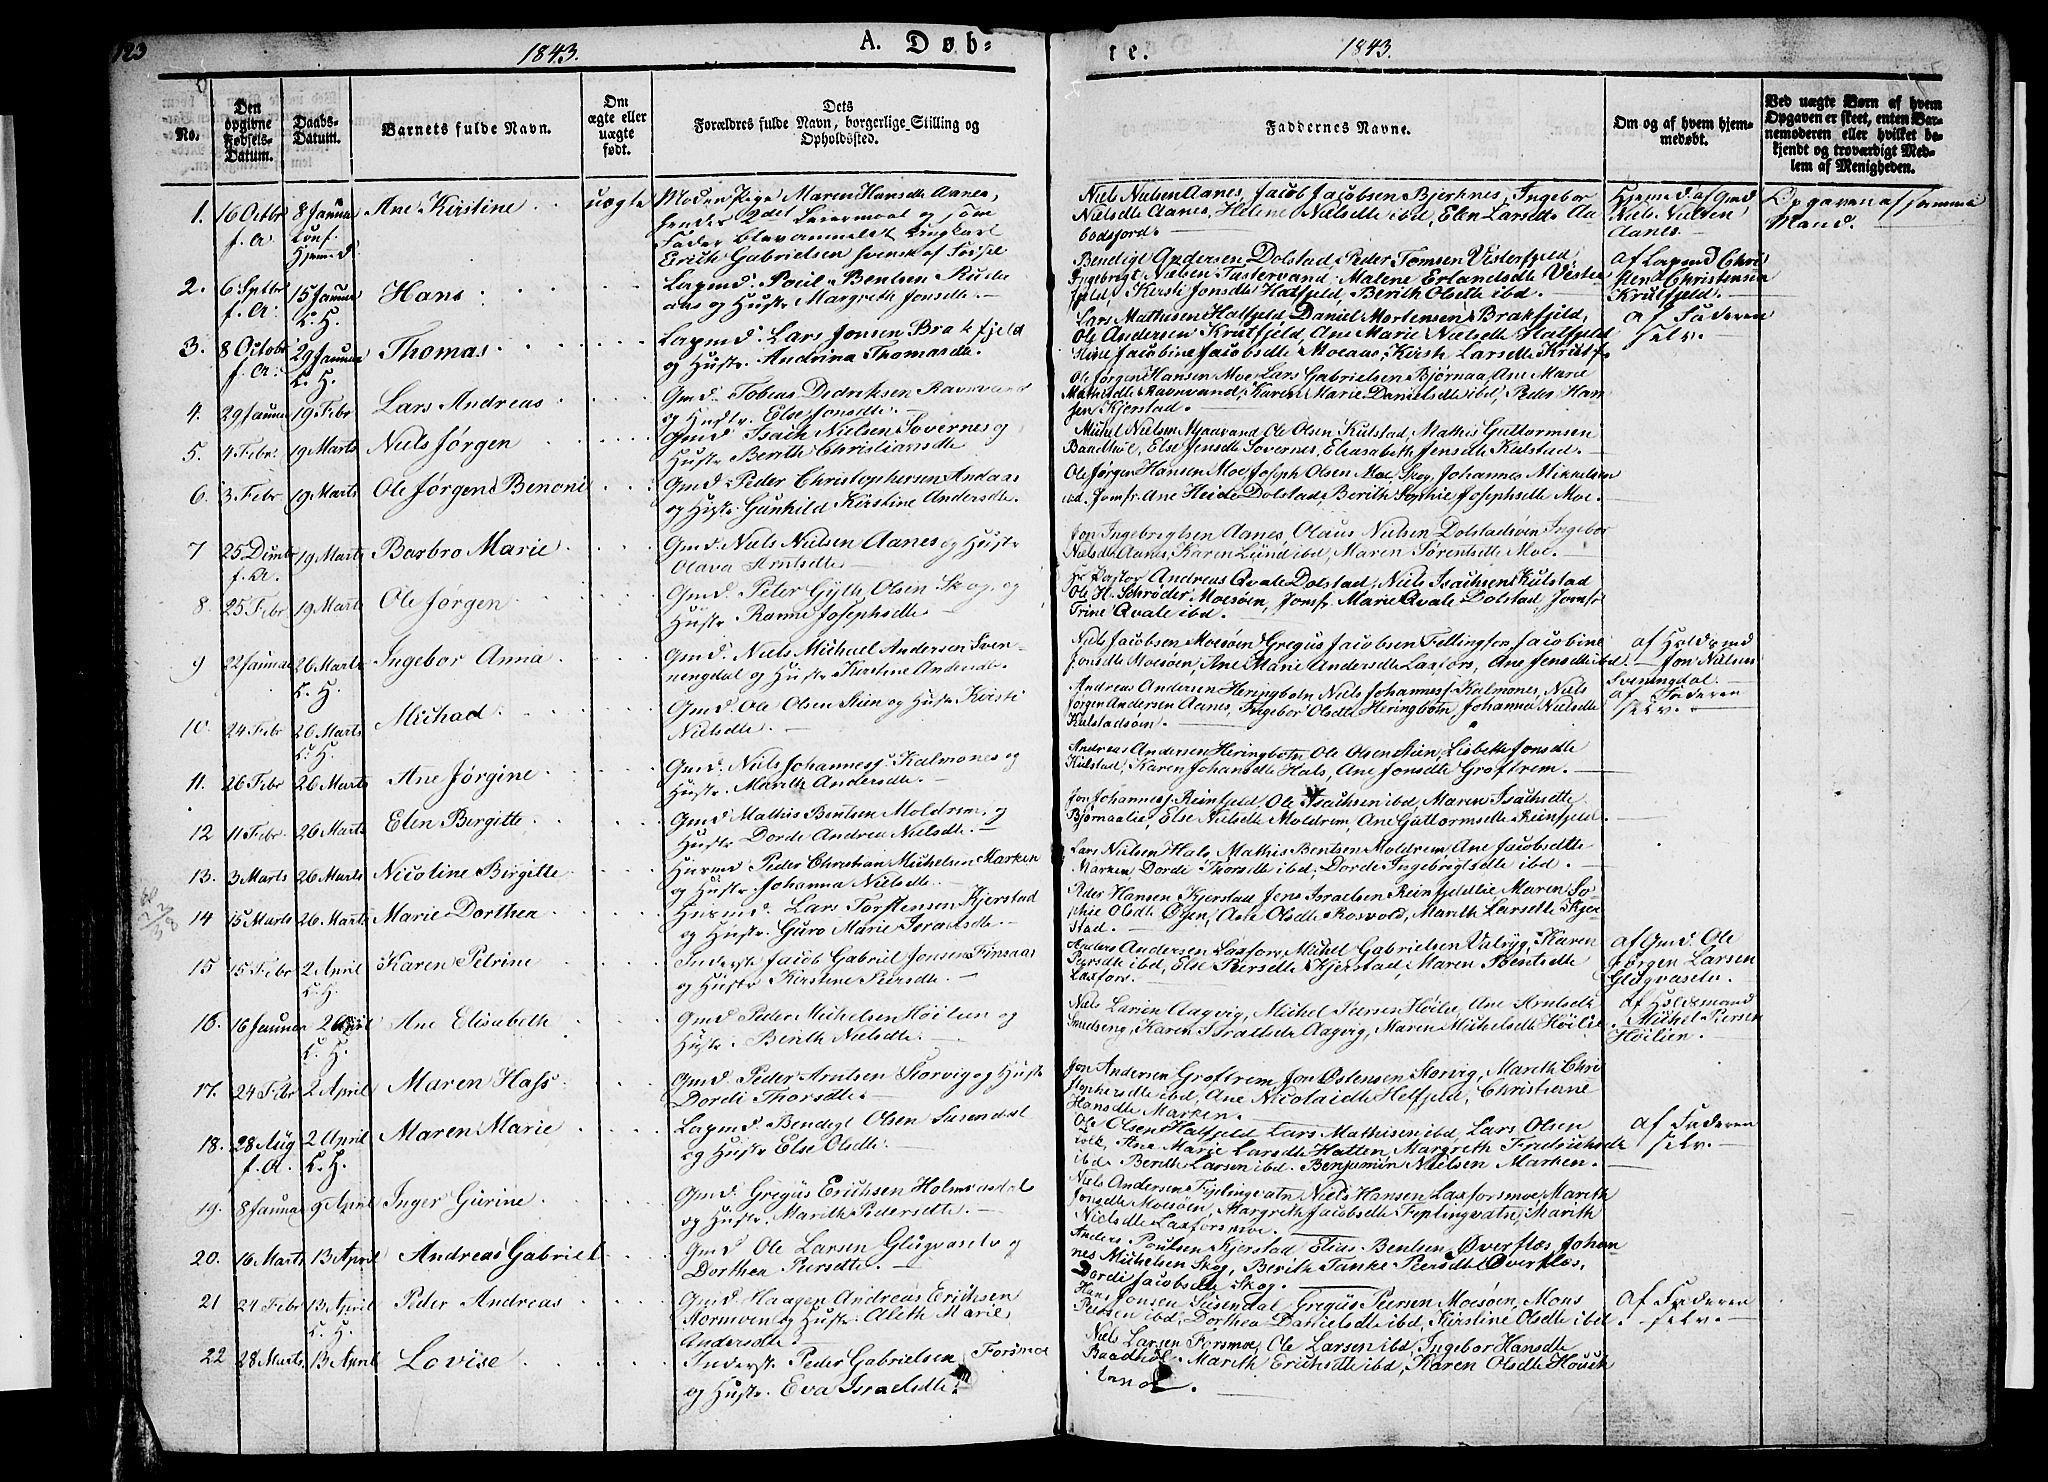 123
1843.
A. Døb-
te.
1843.
No.
Den opgivne Fødsels-Datum.
Daabs-Datum.
Barnets fulde Navn.
Om ægte eller uægte født.
Dets Forældres fulde Navn, borgerlige Stilling og Opholdssted.
Faddernes Navne.
Om og af hvem hjem-medøbt.
Ved uægte Børn af hvem Opgaven er skeet, enten Bar-nemoderen eller hvilket be-kjendt og troværdigt Med-lem af Menigheden.
1. 16 Octbr f. A. 8 Januar Conf. Hjemmed. Ane Kirstine uægte
Moder Pige Maren Hansdtr Aanes,
hendes 2det Leiermaal og som
Fader blev anmeldt Ungkarl
Erich Gabrielsen
Niels Nielsen Aanes, Jacob Jacobsen Bjerknes, Ingebor
Nielsdtr Aanes, Helene Nielsdtr ibd, Elen Larsdtr
Hjemmed. af Gmd
Niels Nielsen
Aanes.
Opgaven af samme
Mand.
2. 6 Septbr f. A. 15 Januar C. H. Hans
Lapmd. Poul Bentsen
og Hustr. Margreth Jonsdtr.
Bendigt Andersen Dolstad, Peder Tomsen Vesterfjeld,
Ingebrigt Nielsen Tustervand, Malene Erlandsdtr Vester
fjeld, Kirsti Jonsdtr Hatfjeld, Berith Olsdtr ibd.
af Lapmd Chri
sten Christensen
Krutfjeld.
3. 8 Octobr f. A. 29 Januar C. H. Thomas
Lapmd. Lars Jonsen Brakfjeld
og Hustr. Andrina Thomasdtr.
Lars Mathisen Hatfjeld, Daniel Mortensen Brakfjeld,
Ole Andersen Krutfjeld, Ane Marie Nielsdtr Hatfjeld
Stine Jacobine Jacobsdtr Moeaas, Kirsti Larsdtr Krutfj.
af Faderen
selv.
4. 29 Januar 19 Febr Lars Andreas
Gmd. Tobias Didriksen Ravnvand
og Hustr. Else Jonsdtr.
Ole Jørgen Hansen Moe, Lars Gabrielsen Bjørnaa, Ane Marie
Mathisdtr Ravnvand, Karen Marie Danielsdtr ibd, Peder Han
sen Kjerstad.
5. 4 Febr. 19 Marts Niels Jørgen
Gmd. Isach Nielsen Sovernes og
Hustr. Berith Christiansdtr
Michel Nielsen Mjaavand, Ole Olsen Kulstad, Mathis Guttormsen
Baadhol, Else Jensdtr Sovernes, Elisabeth Jensdtr Kulstad.
6. 3 Febr 19 Marts Ole Jørgen Benoni
Gmd. Peder Christophersen Andaas
og Hustr. Gunhild Kirstine Andersdtr.
Ole Jørgen Hansen Moe, Joseph Olsen Moe Skog, Johannes Mikkelsen
ibd. Jomfr. Ane Heide Dolstad, Berith Sophie Josephsdtr Moe.
7 25 Decmbr f. A. 19 Marts Barbro Marie
Gmd. Niels Nielsen Aanes og Hustr
Olava Arntsdtr
Jon Ingebrigtsen Aanes, Olaus Nielsen Dolstadsøen, Ingebor
Nielsdtr Aanes, Karen Lund ibd, Maren Sørensdtr Moe.
8 25 Febr 19 Marts Ole Jørgen
Gmd. Peter Gyth Olsen Skog, og
Hustr. Ranni Josephsdtr
Hr Pastor Andreas Qvale Dolstad, Niels Isachsen Kulstad
Ole H. Schrøder Moesøen, Jomfr. Marie Qvale Dolstad, Jomfr
Trine Qvale ibd.
9 22 Januar 26 Marts C. H. Ingebor Anna
Gmd. Niels Michael Andersen Sven-
nengdal og Hustr. Kirstine Andersdtr.
Niels Jacobsen Moesøen, Gregus Jacobsen Fellingfor, Jacobine
Jonsdtr Moesøen, Ane Marie Andersdtr Laxfors, Ane Jensdtr ibd.
af Holdsmd
Jon Nielsen
Svenningdal.
10. 24 Febr 26 Marts C. H. Michael
Gmd. Ole Olsen Stien og Hustr. Kirsti
Nielsdtr.
Andreas Andersen Heringbotn, Niels Johannesj. Kalmones, Niels
Jørgen Andersen Aanes, Ingebor Olsdtr Heringbotn, Johanna Nielsdtr
Kulstadsøen.
af Faderen
selv.
11. 26 Febr 26 Marts Ane Jørgine
Gmd. Niels Johannesj. Kalmones og
Hustr. Marith Andersdtr.
Andreas Andersen Heringbotn, Ole Olsen Stien, Lisbeth Jonsdtr
Kulstad, Karen Johansdtr Hals, Ane Jonsdtr Groftrem.
12 11 Febr. 26 Marts Elen Birgitte
Gmd. Mathis Bentsen Moldrem, og
Hustr. Dorde Andrea Nielsdtr.
Jon Johannesj. Reinfjeld, Ole Isachsen ibd, Maren Isachsdtr
Bjørnaalie, Else Nielsdtr Moldrem, Ane Guttormsdtr Reinfjeld.
13. 3 Marts 26 Marts Nicoline Birgitte
Husmd Peder Christian Michelsen Marken
og Hustr. Johanna Nielsdtr.
Lars Nielsen Hals, Mathis Bentsen Moldrem, Ane Jacobsdtr
Marken, Dorde Thorsdtr ibd, Dorde Ingebrigtsdtr ibd.
14 15 Marts 26 Marts Marie Dorthea
Husmd. Lars Torstensen Kjerstad
og Hustr. Guro Marie Israelsdtr.
Peder Hansen Kjerstad, Jens Israelsen Reinfjeldlie, Maren So-
phie Olsdtr Øyen, Ane Olsdtr Rosvold, Marith Larsdtr Kjer
stad.
15 15 Febr 2 April C. H. Karen Petrine
Inderst. Jacob Gabriel Jonsen Finsaas
og Hustr. Kirstine Peersdtr.
Anders Andersen Laxfors, Michel Gabrielsen Valryg, Karen
Peersdtr ibd, Else Peersdtr Kjerstad, Maren Bentsdtr
Laxfors.
af Gmd. Ole
Jørgen Larsen
Glugvaselv.
16. 16 Januar 2 April C. H. Ane Elisabeth
Gmd. Peder Michelsen Høilien og
Hustr. Berith Nielsdtr.
Niels Larsen Aagvig, Michel Peersen Høilie, Ane Arntsdtr
Smedseng, Karen Israelsdtr Aagvig, Maren Michelsdtr Høilie
af Holdsmand
Michel Peersen
Høilien.
17. 24 Febr 2 April Maren Hass.
Gmd. Peder Arntsen Storvig og Hustr
Dordi Thorsdtr.
Jon Andersen Groftrem, Jon Østensen Storvig, Marith Chri
stophersdtr ibd, Ane Nicolaidtr Helfjeld, Christierne
Hansdtr Marken.
18. 28 Aug f. A. 2 April C. H. Maren Marie
Lapmd. Bendigt Olsen Susendal
og Hustr. Else Olsdtr.
Ole Olsen Hatfjeld, Lars Mathisen ibd, Lars Olsen
Ane Marie Larsdtr Hatten, Margreth Fredrichsdtr
ibd. Berith Larsen ibd. Benjamin Nielsen Marken.
af Faderen
selv.
19. 8 Januar 9 April Inger Gurine
Gmd. Gregus Erichsen Holmvasdal
og Hustr. Marith Pedersdtr.
Niels Andersen Fiplingvatn, Niels Hansen Laxforsmoe, Marith
Jonsdtr Moesøen, Margreth Jacobsdtr Fiplingvatn, Marith
Nielsdtr Laxforsmoe.
20. 16 Marts 13 April Andreas Gabriel
Gmd. Ole Larsen Glugvaselv og
Dorthea Peersdtr.
Anders Poulsen Kjerstad, Elias Bentsen Øverflos, Johan
nes Michelsen Skog, Berith Tanke Peersdtr Øverflos,
Dordi Jacobsdtr Skog.
21 24 Febr 13 April C. H. Peder Andreas
Gmd. Haagen Andreas Erichsen
Stormoen og Hustr. Aleth Marie
Andersdtr.
Hans Jonsen Susendal, Gregus Peersen Moesøen, Mons
Peersen ibd, Dorthea Danielsdtr ibd, Kirstine Olsdtr ibd.
af Faderen
selv.
22 28 Marts 13 April Lovise
Inderst. Peder Gabrielsen Forsmoe
og Hustr. Eva Israelsdtr.
Niels Larsen Forsmoe, Ole Larsen ibd, Ingebor Hansdtr
Baadhol, Marith Erichsdtr ibd, Karen Olsdtr